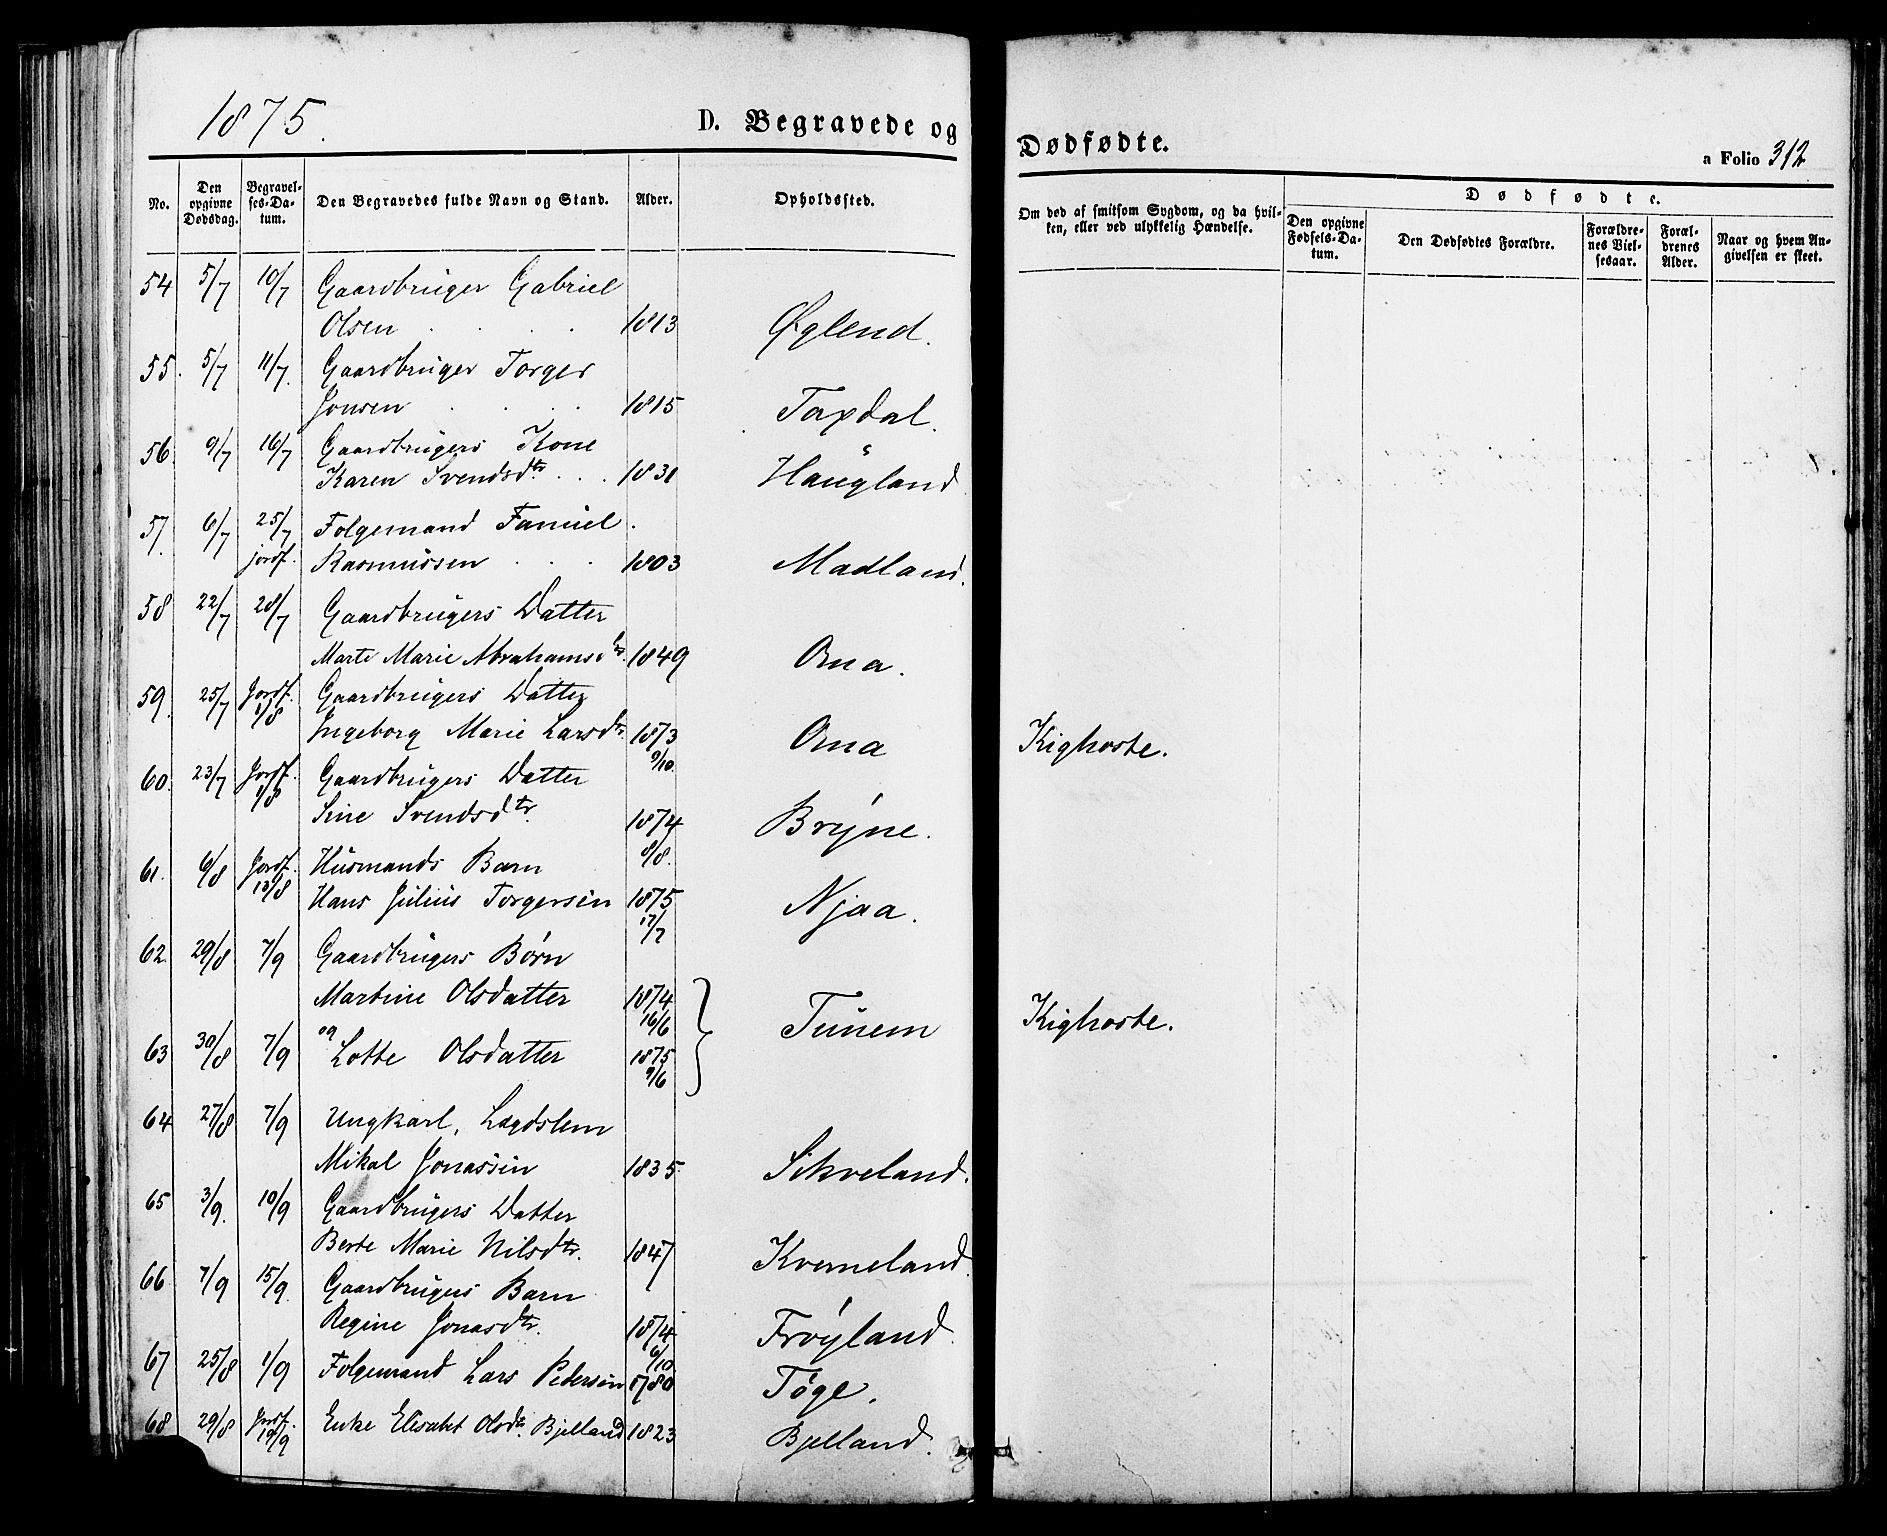 1875.
D. Begravede og Dødfødte.
a Folio 312
No.
Den opgivne Dødsdag.
Begravelses-Datum.
Den Begravedes fulde Navn og Stand.
Alder.
Opholdssted.
Om død af smitsom Sygdom, og da hvilken, eller ved ulykkelig Hændelse.
Dødfødte.
Den opgivne Fødsels-Datum.
Den Dødfødtes Forældre.
Forældrenes Vielsesaar.
Forældrenes Alder.
Naar og hvem Angivelsen er skeet.
54 5/7 10/7 Gaardbruger Gabriel
Olsen . . . . 1813 Øglend.
55. 5/7 11/7. Gaardbruger Torger
Jonsen . . . . 1815 Taxdal.
56. 9/7 16/7 Gaardbrugers Kone
Karen Svendsdtr. . . 1831 Haugland
57. 6/7 25/7 Folgemand Samuel.
jordf. Rasmussen . . . 1803 Madland.
58 22/7 28/7 Gaardbrugers Datter
Marte Marie Abrahamsdtr. 1849 Oma.
59. 25/7 Jordf. 1/8 Gaardbrugers Datter
Ingeborg Marie Larsdtr. 1873 9/10. Oma Kighoste.
60. 23/7 Jordf. 1/8 Gaardbrugers Datter
Sine Svendsdtr. 1874 8/8. Bryne.
61. 6/8 Jordf. 13/8 Husmands Barn
Hans Julius Torgersen 1875 17/7 Njaa.
62. 29/8 7/9 Gaardbrugers Børn
Martine Olsdatter 1874 16/6 Tunem Kighoste.
63 30/8 7/9 og Lotte Olsdatter 1875 9/6
64 27/8 7/9 Ungkarl, Lægdslem
Mikal Jonassen 1835. Sikveland.
65 3/9. 10/9 Gaardbrugers Datter
Berte Marie Nilsdtr. 1847 Kverneland.
66 7/9 15/9 Gaardbrugers Barn
Regine Jonasdtr. 1874 6/10. Frøyland.
67 25/8 1/9 Folgemand Lars Pedersen 1780 Tøge.
68 29/8 Jordf. 19/9 Enke Elisabet Olsdtr. Bjelland 1823 Bjelland.